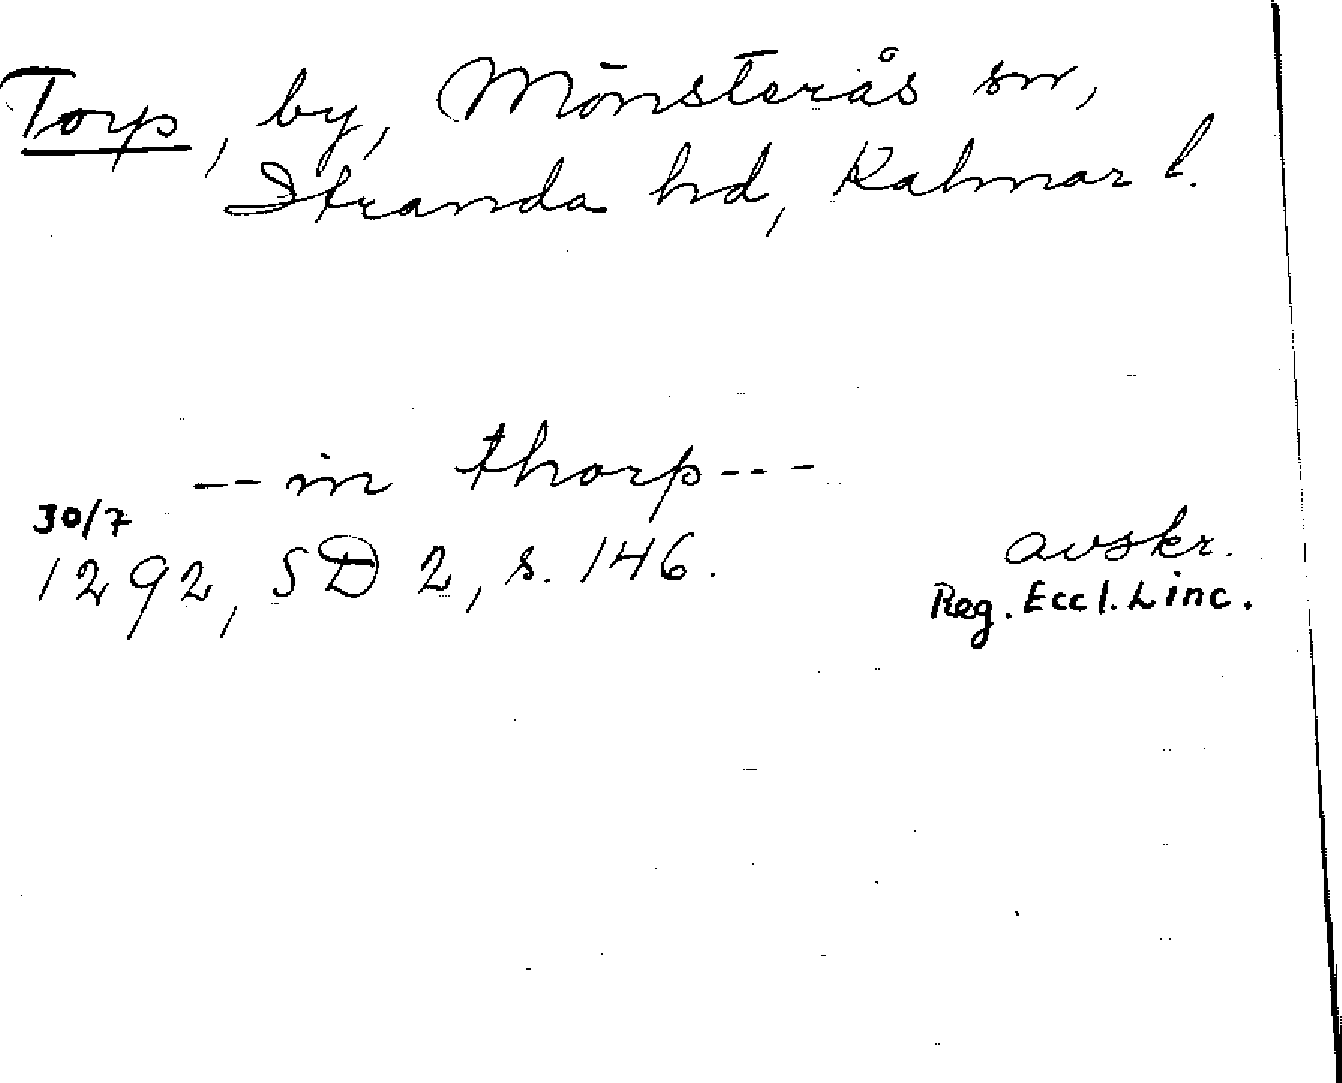 Torp, by, Mönsterås sn,
Stranda hd, Kalmar l.
-- in thorp ---
30/7
1292, SD 2, s. 146.
avskr.
Reg. Eccl. Linc.